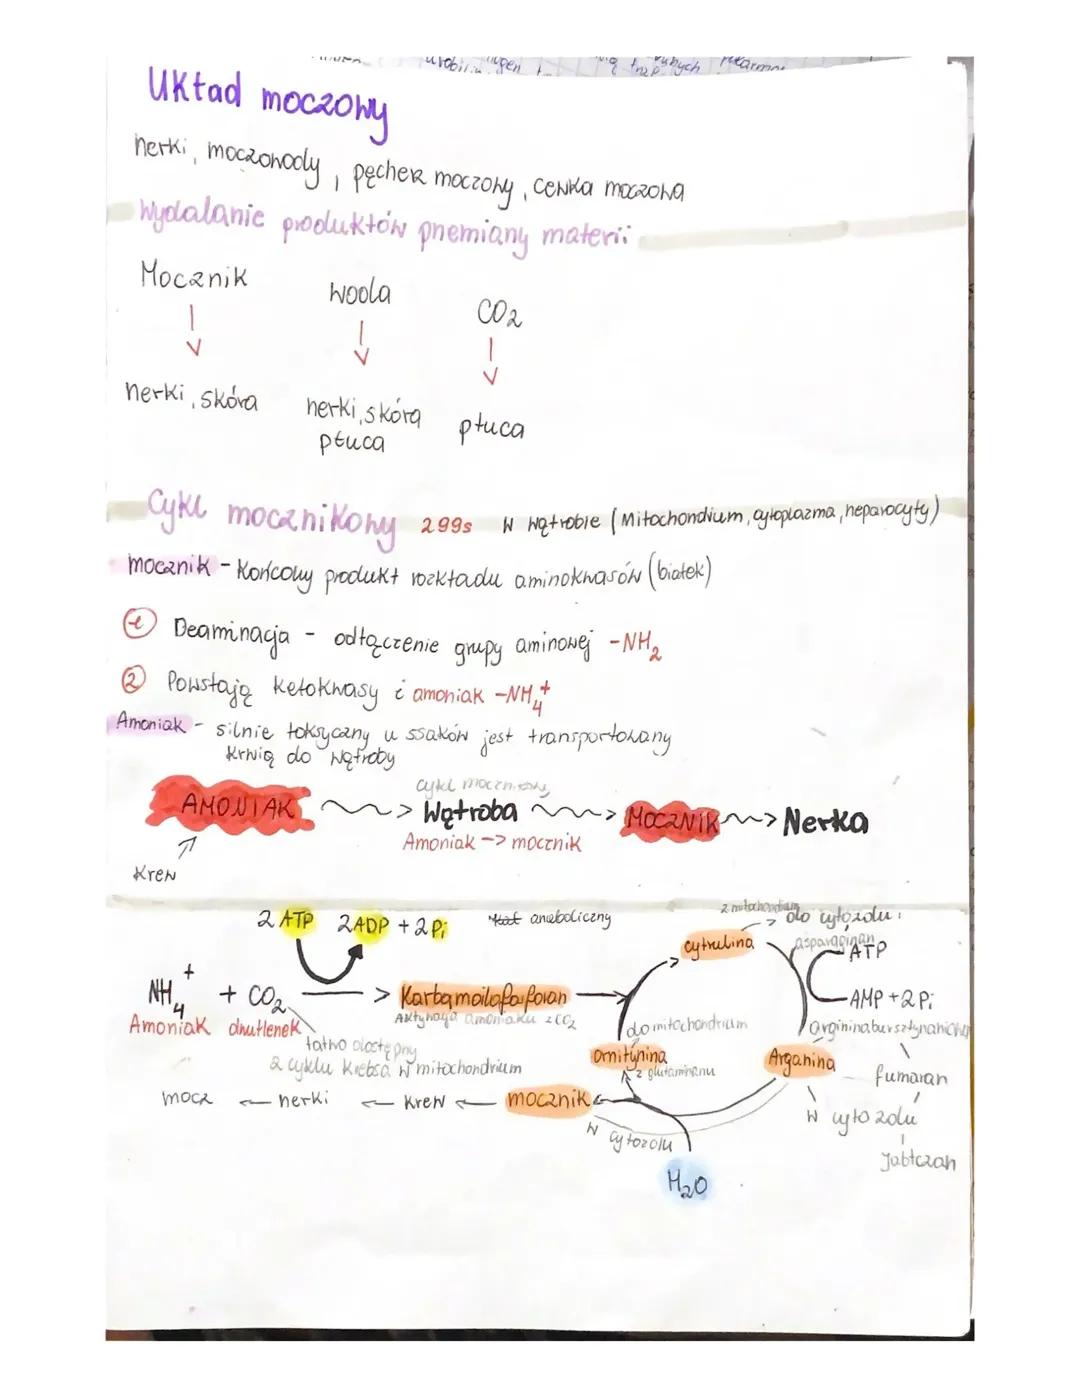 Układ moczowy
nerki, moczowody, pęcherz moczowy, cewka moczowa
Wydalanie produktów przemiany materii
Mocznik
woda
CO2
nerki, skóra
nerki, skóra
płuca
płuca
Cykl mocznikowy 299s w wątrobie (mitochondrium, cytoplazma, heparocyty)
mocznik - końcowy produkt rozkładu aminokwasów (białek)
1 Deaminacja - odłączenie grupy aminowej -NH2
2 Powstają ketokwasy i amoniak -NH4+
Amoniak - silnie toksyczny u ssaków jest transportowany
krwią do wątroby
cykl mocznikowy
AMONIAK ~~> Wątroba ~~> MOCZNIK ~~> Nerka
Amoniak -> mocznik
Krew
2 ATP 2ADP + 2Pi
anaboliczny
z mitochondrium
-> do cytozolu
cytrulina
asparaginian
ATP
NH4+ + CO2 -> Karbamoilofosforan
AMP + 2Pi
Amoniak dwutlenek
Aktywacja amoniaku z CO2
do mitochondrium
argininabursztynianowa
łatwo dostępny
z cyklu Krebsa w mitochondrium
Ornitynina
z glutaminanu
Arganina
fumaran
mocz <- nerki <- krew <- mocznik
w cytozolu
w cytozolu
Jabłczan
H2O